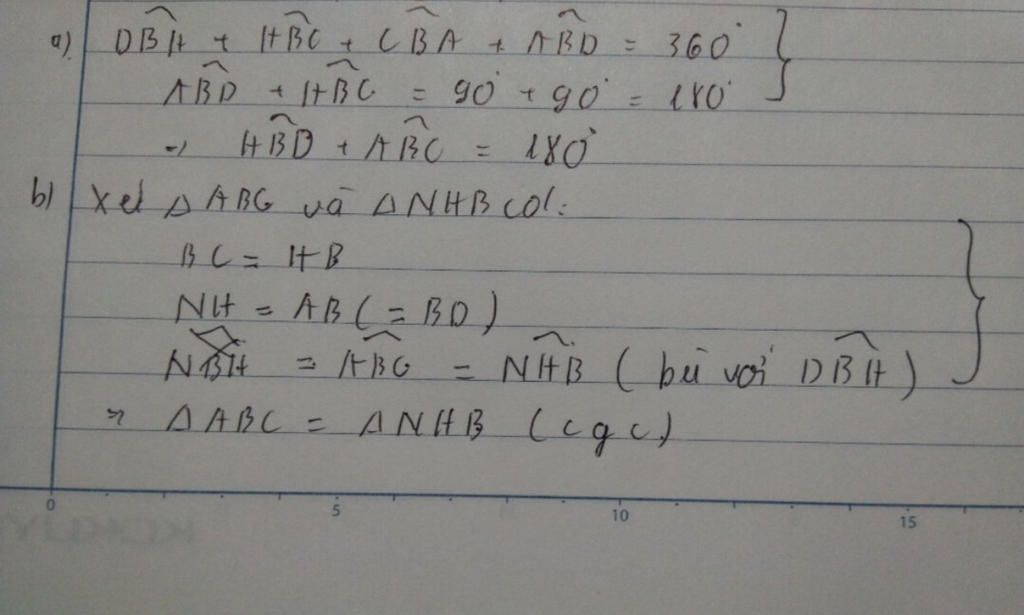 a) DB̂H + HB̂C + CB̂A + AB̂D = 360°
AB̂D + HB̂C = 90° + 90° = 180°
⇒ HB̂D + AB̂C = 180°
b) Xét Δ ABC và Δ NHB có:
BC = HB
NH = AB (= BD)
AB̂C = NĤB (bù với DB̂H)
⇒ Δ ABC = Δ NHB (c g c)
0 5 10 15